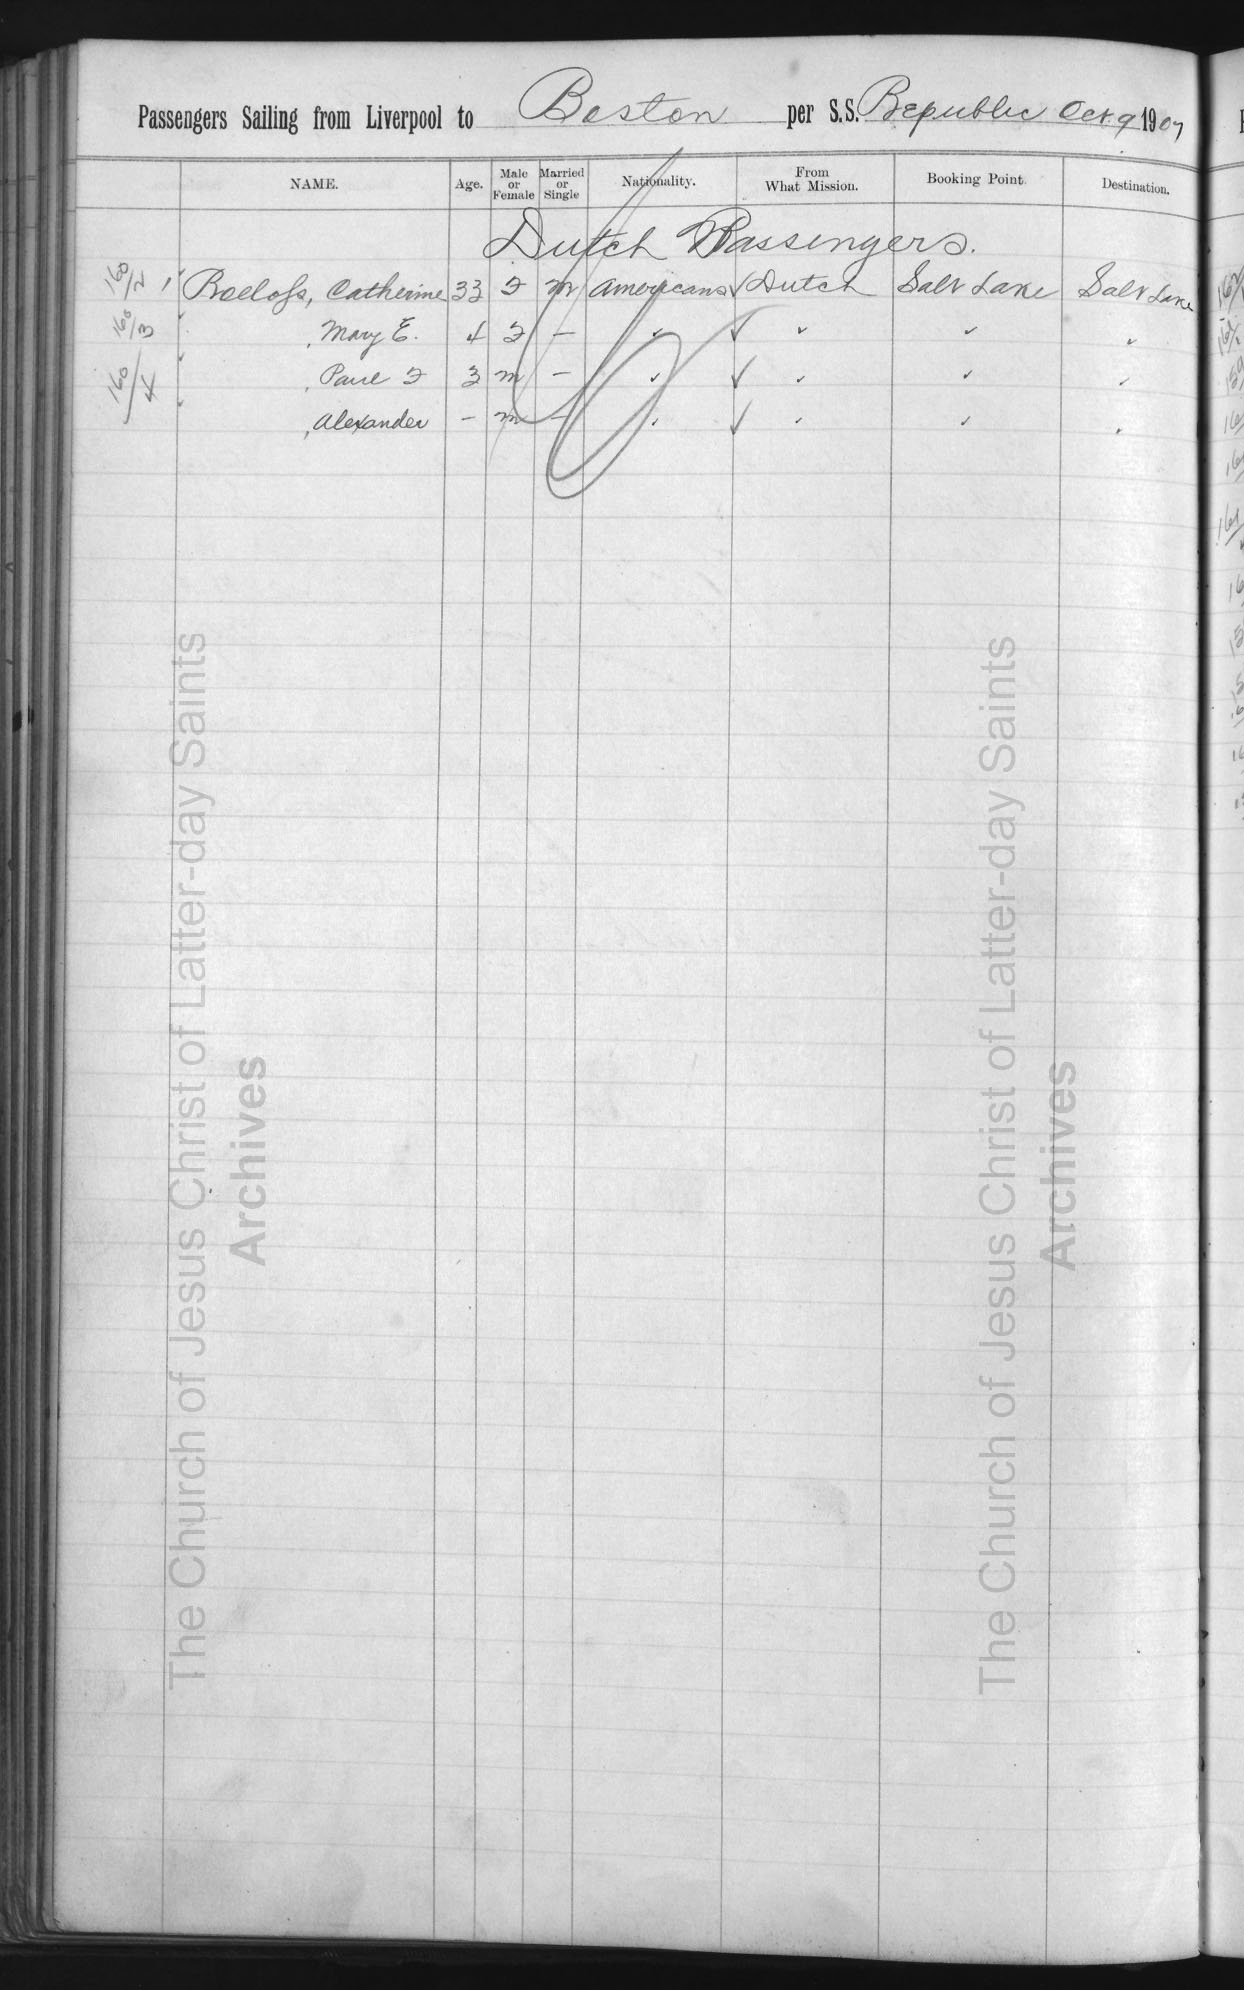 Passengers Sailing from Liverpool to Boston per S.S. Republic Oct. 9 1907
NAME. Age. Male or Female Married or Single Nationality. From What Mission. Booking Point. Destination.
Dutch Passengers.
160/2 1 Roelofs, Catherine 33 F m Americans ✓ Dutch Salt Lake Salt Lake
160/3 " , Mary E. 4 F — " ✓ " " "
160/4 " , Paul F 3 m — " ✓ " " "
" , Alexander — m — " ✓ " " "
The Church of Jesus Christ of Latter-day Saints
Archives
The Church of Jesus Christ of Latter-day Saints
Archives